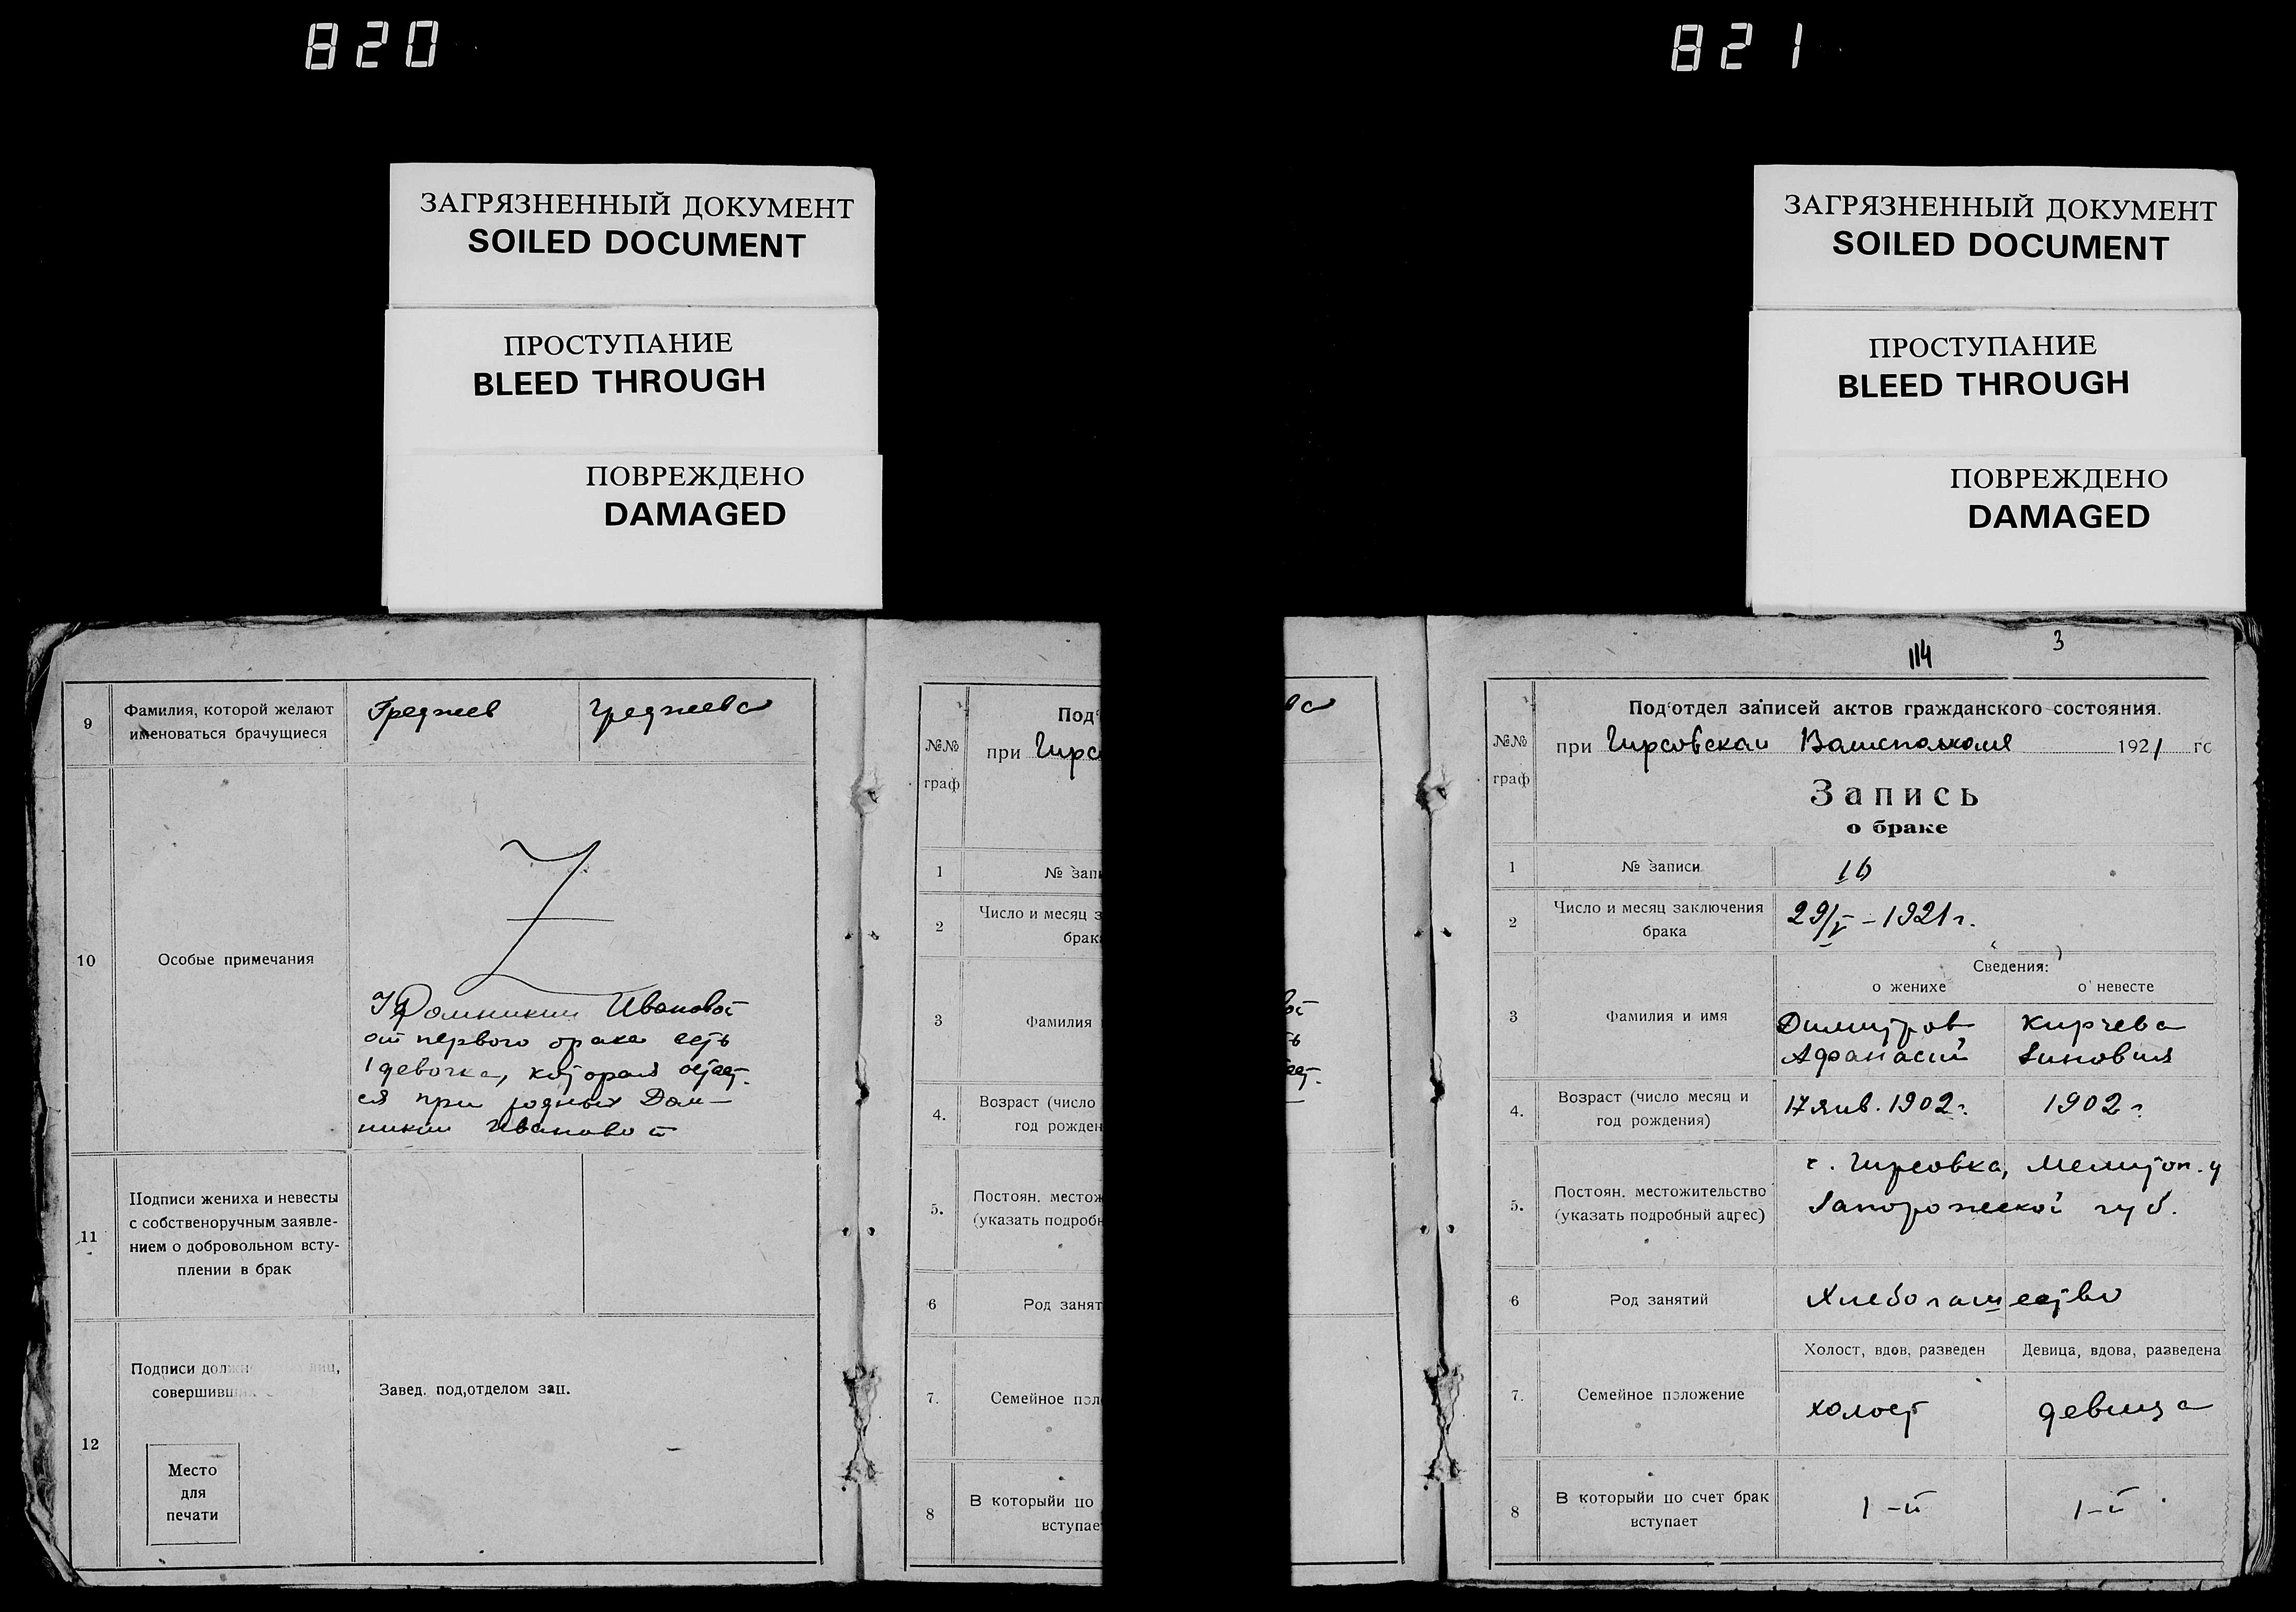 820
ЗАГРЯЗНЕННЫЙ ДОКУМЕНТ
SOILED DOCUMENT
ПРОСТУПАНИЕ
BLEED THROUGH
ПОВРЕЖДЕНО
DAMAGED
9
Фамилия, которой желают
именоваться брачущиеся
Греджев
Греджева
10
Особые примечания
У Домникии Ивановой
от первого брака есть
1 девочка, которая остает-
ся при родных Дом-
никии Ивановой
11
Подписи жениха и невесты
с собственоручным заявле-
нием о добровольном всту-
плении в брак
12
Подписи
совершивш
Завед. под,отделом зап.
Место
для
печати
№№
граф
Под
при Гирс
1
№ запи
2
Число и месяц з
брак
3
Фамилия
4.
Возраст (число
год рожден
5.
Постоян. местож
(указать подробн
6
Род занят
7.
Семейное пол
8
В которыйи по
вступае
821
ЗАГРЯЗНЕННЫЙ ДОКУМЕНТ
SOILED DOCUMENT
ПРОСТУПАНИЕ
BLEED THROUGH
ПОВРЕЖДЕНО
DAMAGED
114
3
№№
граф
Под‘отдел записей актов гражданского состояния.
при Гирсовском Волисполкоме 1921 го
Запись
о браке
1
№ записи
16
2
Число и месяц заключения
брака
29/V – 1921 г.
Сведения:
о женихе
о невесте
3
Фамилия и имя
Димитров
Афанасий
Кирчева
Зиновия
4.
Возраст (число месяц и
год рождения)
17 янв. 1902 г.
1902 г.
5.
Постоян. местожительство
(указать подробный адрес)
с. Гирсовка, Мелитоп. у
Запорожской губ.
6
Род занятий
Хлебопашество
7.
Семейное положение
Холост, вдов, разведен
Девица, вдова, разведена
холост
девица
8
В которыйи по счет брак
вступает
1-й
1-й